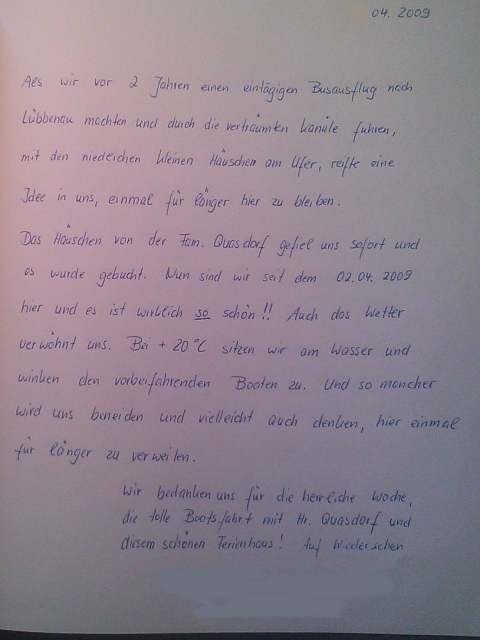 04. 2009
Als wir vor 2 Jahren einen eintägigen Busausflug nach
Lübbenau machten und durch die verträumten Kanäle fuhren,
mit den niedlichen kleinen Häuschen am Ufer, reifte eine
Idee in uns, einmal für länger hier zu bleiben.
Das Häuschen von der Fam. Quasdorf gefiel uns sofort und
es wurde gebucht. Nun sind wir seit dem 02.04. 2009
hier und es ist wirklich so schön!! Auch das Wetter
verwöhnt uns. Bei + 20°C sitzen wir am Wasser und
winken den vorbeifahrenden Booten zu. Und so mancher
wird uns beneiden und vielleicht auch denken, hier einmal
für länger zu verweilen.
Wir bedanken uns für die herrliche Woche,
die tolle Bootsfahrt mit Hr. Quasdorf und
diesem schönen Ferienhaus! Auf Wiedersehen